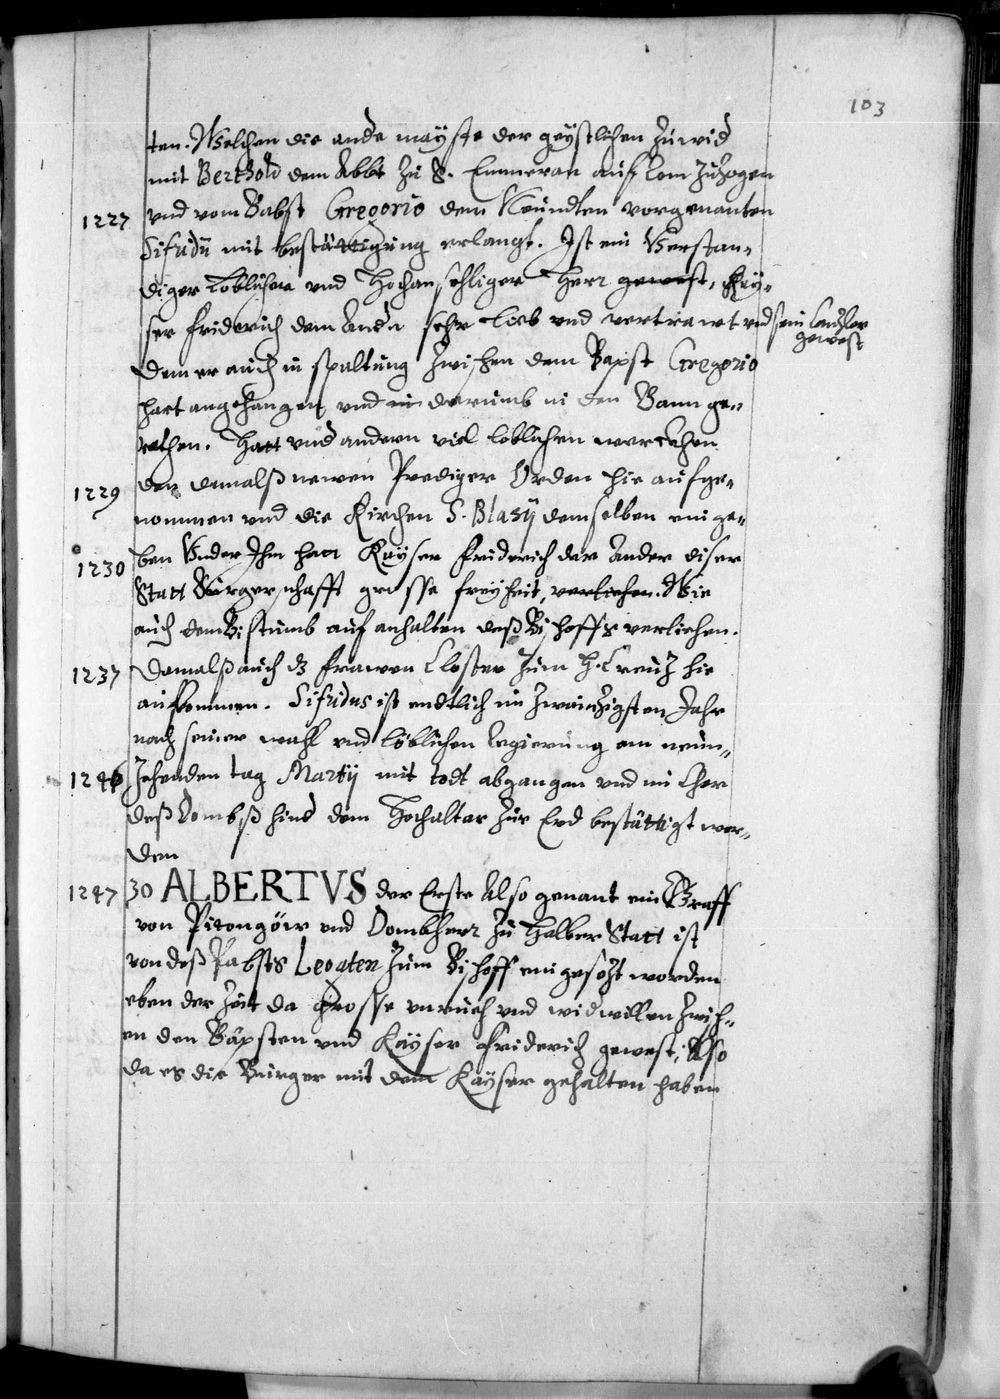 103
ten. Welchen die ande mayste der geystlichen zuwid
mit Berthold dem Abbt zu S. Emmeran auf Rom zuzogen
1227 vnd vom Babst Gregorio dem Neundten vorgenanten
Sifridū mit bestättigung erlangt. Ist ein Verstan-
diger Loblicher vnd Hochansehliger Herr gewest, Kay-
ser Friderich dem Andn sehr lieb vnd vertrawt vnd sein Cantzler
gewest
Dem er auch in spaltung zwischen dem Bapst Gregorio
hart angehangen vnd darumb in den Bann ge-
rathen. Hatt vnd andern viel loblichen wercken
1229 den damalß newen Prediger Orden hie aufge-
nommen vnd die Kirchen S. Blasÿ demselben einge-
1230 ben Vnder Ihm hatt Kayser Friderich der Ander diser
Statt Burgerschafft grosse freyheit, verliehen. Wie
auch dem Bistumb auf anhalten deß Bischoffs verliehen.
1237 Damalß auch dz Frawen Closter zum H. Creuz hie
aufkommen. Sifridus ist endtlich im zwaintzigsten Jahr
nach seiner wahl vnd löblichen Regierung am neun-
1246 zehenden tag Martÿ mit todt abgangen vnd im Chor
deß Dombß hind dem Hochaltar zur Erd bestättigt wor-
den
1247 30 ALBERTVS der Erste Also genant ein Graff
von Pitengöw vnd Dombherr zu Halber Statt ist
von deß Pabsts Legaten zum Bischoff eingesezt worden
eben der Zeit da grosse vnruh vnd widwillen zwisch-
en den Bäpsten vnd Kayser Friderich gewest, Also
da es die Burger mit dem Kayser gehalten haben